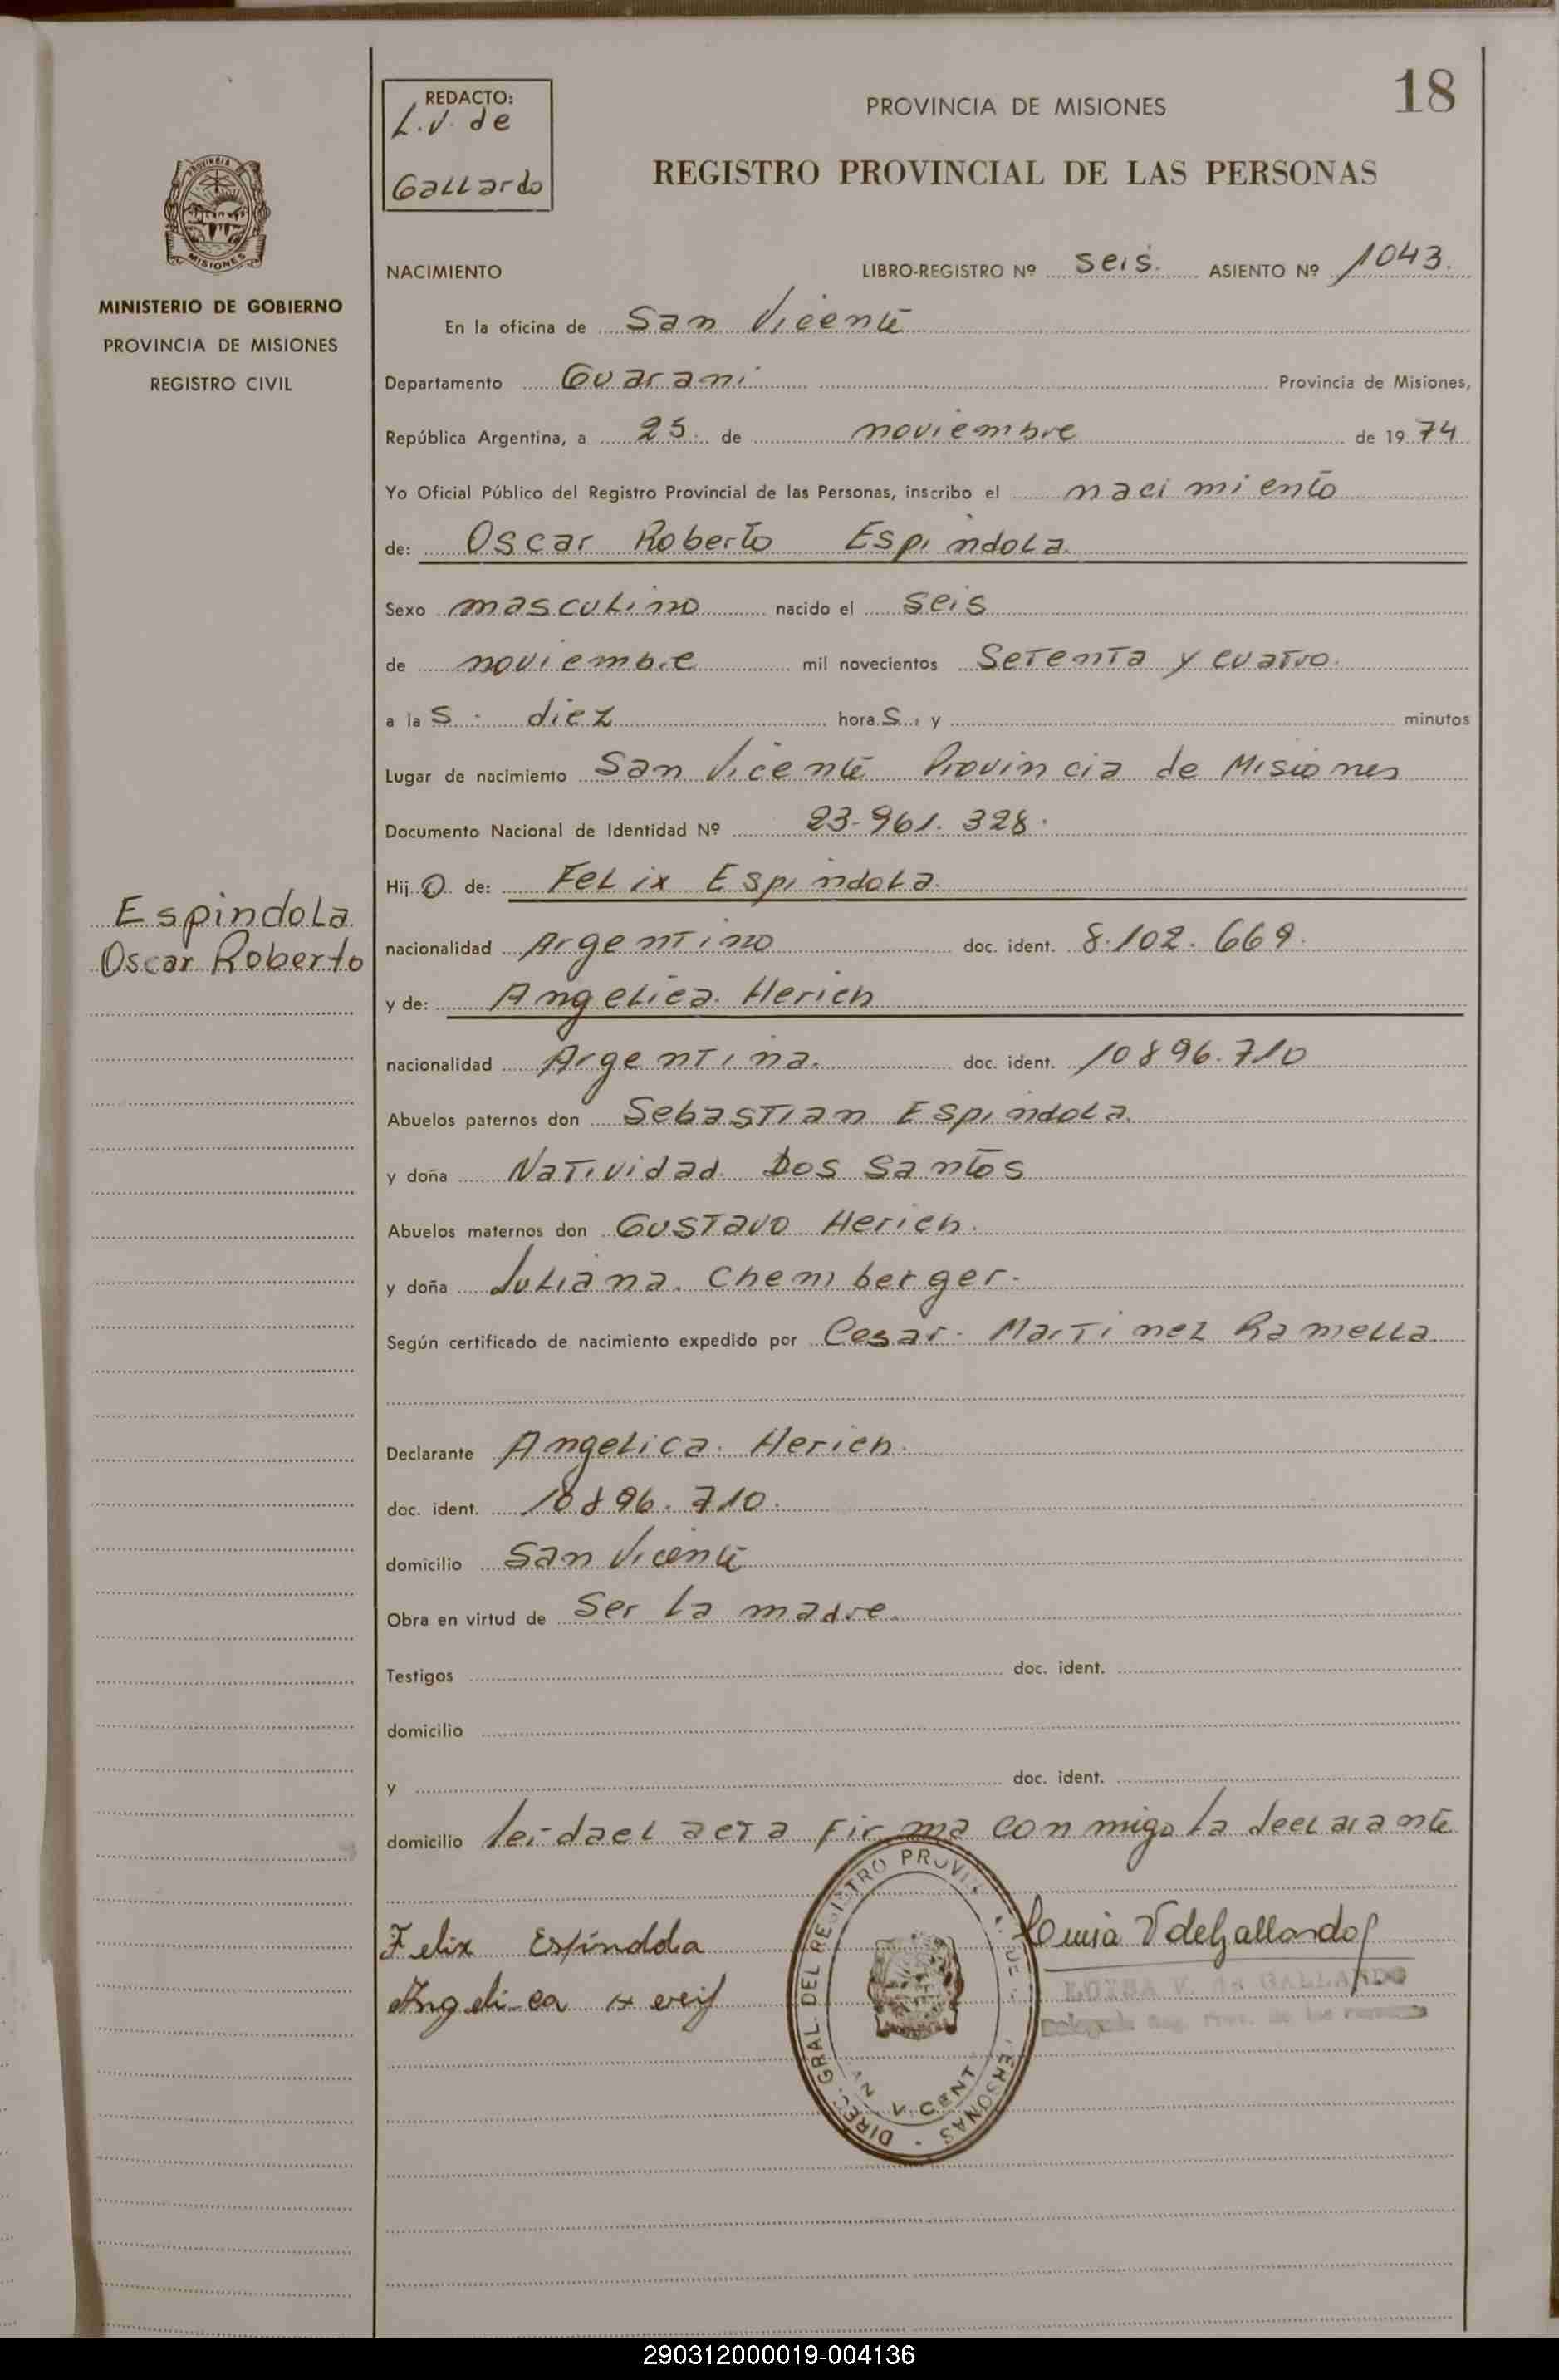 18
REDACTO:
L.V. de
Gallardo
PROVINCIA DE MISIONES
REGISTRO PROVINCIAL DE LAS PERSONAS
MISIONES
MINISTERIO DE GOBIERNO
PROVINCIA DE MISIONES
REGISTRO CIVIL
NACIMIENTO LIBRO-REGISTRO Nº seis. ASIENTO Nº 1043.
En la oficina de San Vicente
Departamento Guarani Provincia de Misiones,
República Argentina, a 25. de noviembre de 1974
Yo Oficial Público del Registro Provincial de las Personas, inscribo el nacimiento
de: Oscar Roberto Espindola.
Sexo masculino nacido el seis
de noviembre mil novecientos Setenta y cuatro.
a las. diez horas., y minutos
Lugar de nacimiento San Vicente Provincia de Misiones
Documento Nacional de Identidad Nº 23-961.328.
Hijo de: Felix Espindola.
Espindola
Oscar Roberto
nacionalidad Argentino doc. ident. 8.102.669.
y de: Angelica. Herich
nacionalidad Argentina. doc. ident. 10896.710
Abuelos paternos don Sebastian Espindola.
y doña Natividad Dos Santos
Abuelos maternos don Gustavo Herich.
y doña Juliana. Chemberger.
Según certificado de nacimiento expedido por Cesar. Martinez Ramella.
Declarante Angelica. Herich.
doc. ident. 10896.710.
domicilio San Vicente
Obra en virtud de Ser la madre.
Testigos doc. ident.
domicilio
y doc. ident.
domicilio leidael acta firma conmigo la declarante
Felix Espindola
Angelica
Luisa V de Gallardo
LUISA V. de GALLARDO
DIREC. GRAL. DEL REGISTRO PROVIN DE PERSONAS
290312000019-004136